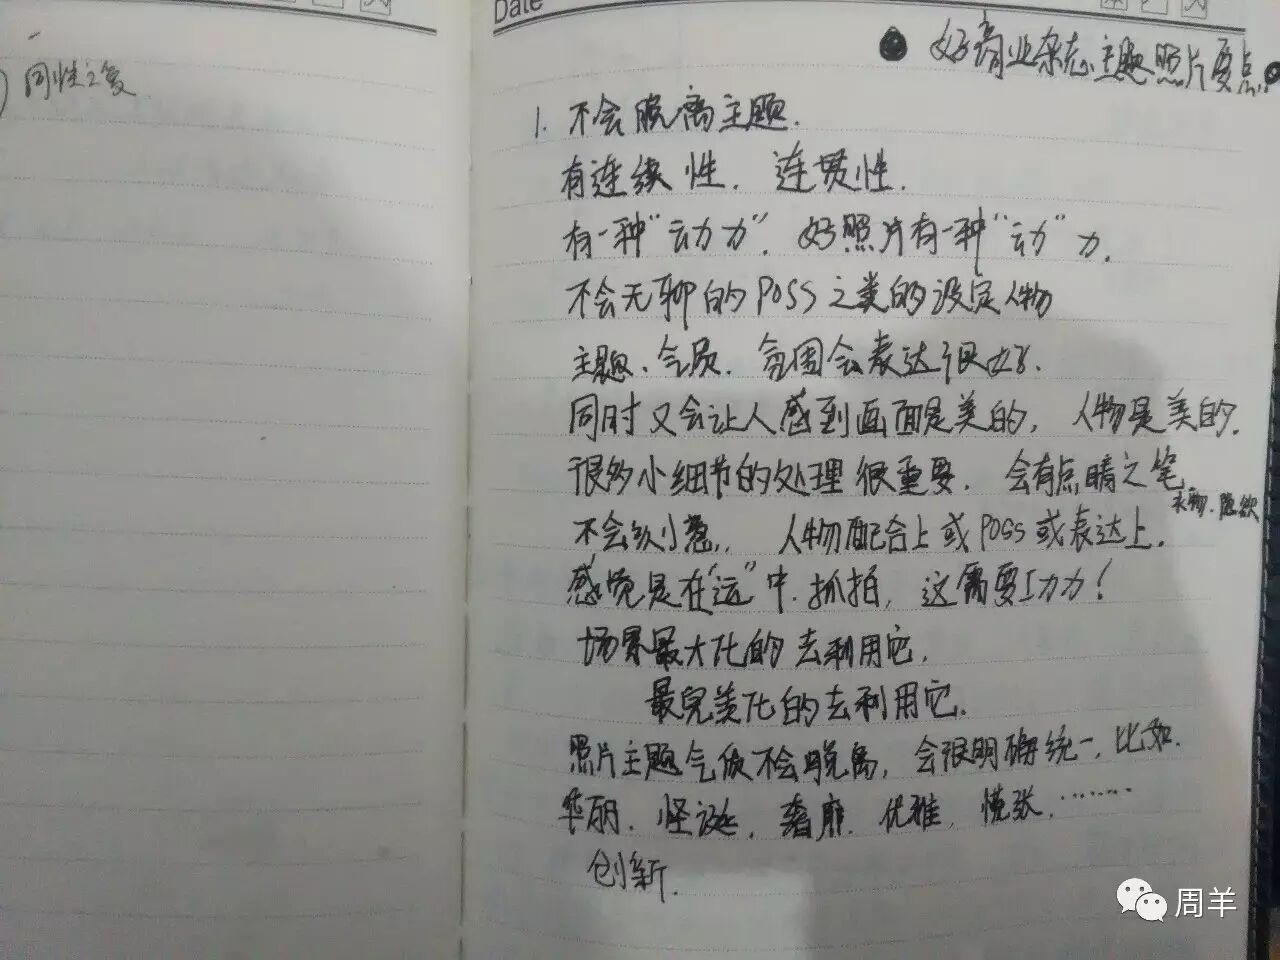 Date
同性之爱
好商业杂志主题照片要点
1. 不会脱离主题.
有连续性. 连贯性.
有一种“动力”. 好照片有一种“动”力.
不会无聊的POSS之类的设定人物
主题、气质. 氛围会表达很好.
同时又会让人感到画面是美的, 人物是美的.
很多小细节的处理很重要. 会有点睛之笔
不会 人物配合上或POSS或表达上.
感觉是在“远”中.抓拍, 这需要功力!
场景最大化的去利用它.
最完美化的去利用它.
照片主题气质不会脱离, 会很明确统一, 比如.
华丽. 怪诞. 奢靡. 优雅. 慌张.………
创新.
周羊